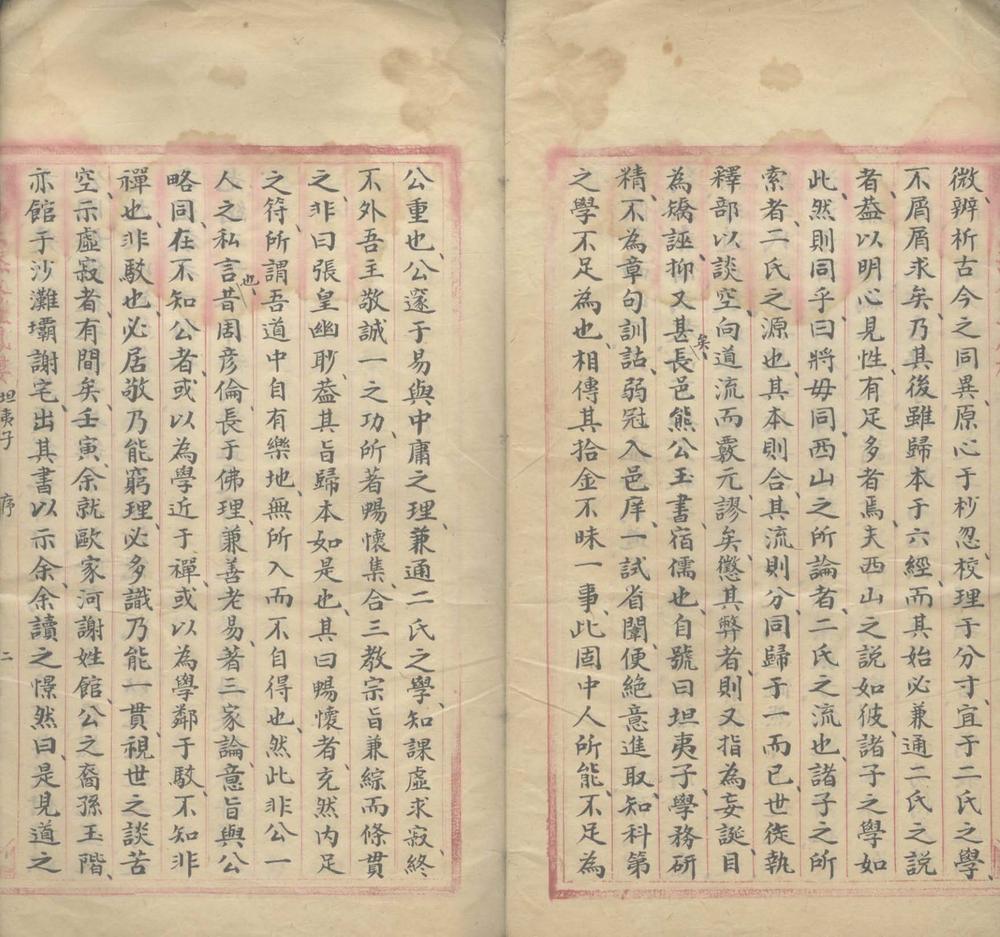 微辨析古今之同異原心于杪忽校理于分寸宜于二氏之學
不屑屑求矣乃其後雖歸本于六經而其始必兼通二氏之說
者葢以明心見性有足多者焉夫西山之説如彼諸子之學如
此然則同乎曰將毋同西山之所論者二氏之流也諸子之所
索者二氏之源也其本則合其流則分同歸于一而已世徒執
釋部以談空向道流而覈元謬矣懲其弊者則又指為妄誕目
為矯誣抑又甚矣長邑熊公玉書宿儒也自號曰坦夷子學務研
精不為章句訓詁弱冠入邑庠一試省闈便絶意進取知科第
之學不足為也相傳其拾金不昧一事此固中人所能不足為
公重也公邃于易與中庸之理兼通二氏之學知課虛求寂終
不外吾主敬誠一之功所著暢懷集合三教宗旨兼綜而條貫
之非曰張皇幽眇葢其旨歸本如是也其曰暢懷者充然内足
之符所謂吾道中自有樂地無所入而不自得也然此非公一
人之私言也昔周彦倫長于佛理兼善老易著三家論意旨與公
略同在不知公者或以為學近于禪或以為學鄰于駁不知非
禪也非駁也必居敬乃能窮理必多識乃能一貫視世之談苦
空示虛寂者有間矣壬寅余就歐家河謝姓館公之裔孫玉階
亦館于沙灘壩謝宅出其書以示余余讀之憬然曰是見道之
坦夷子 序 二